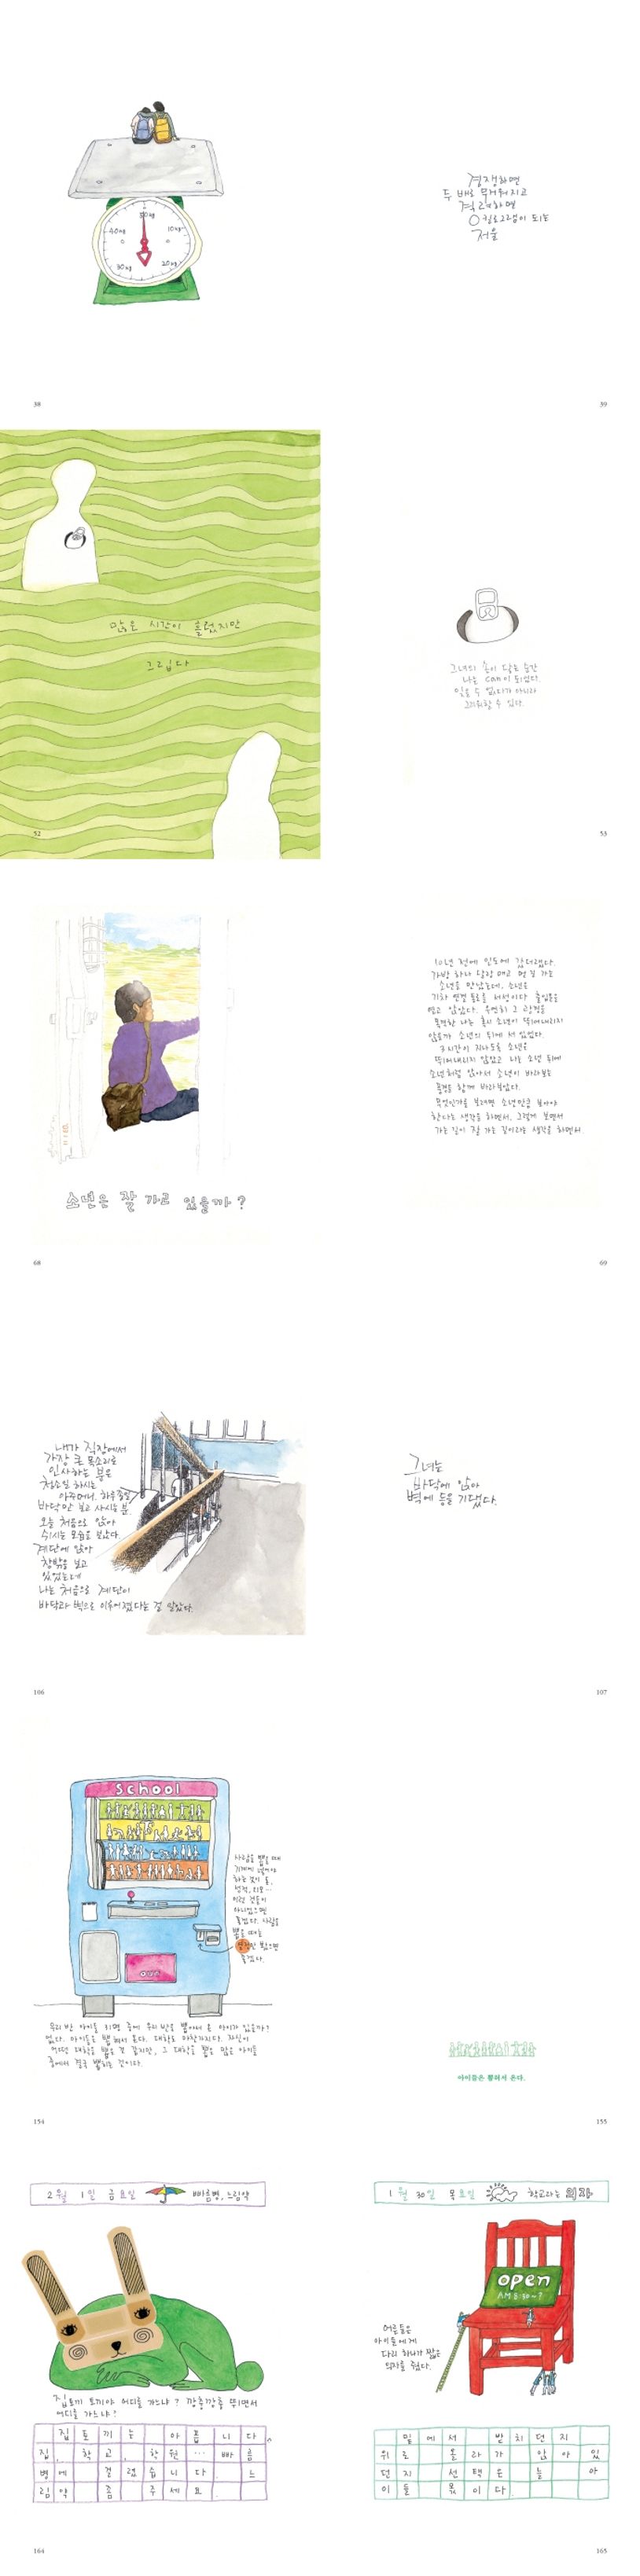 50kg
40kg
10kg
30kg
20kg
경쟁하면
두 배로 무거워지고
격려하면
0킬로그램이 되는
저울
38
39
많은 시간이 흘렀지만
그립다
그녀의 손이 닿는 순간
나는 can이 되었다.
잊을 수 없다가 아니라
그리워할 수 있다.
52
53
소년은 잘 가고 있을까?
10년 전에 인도에 갔더랬다.
가방 하나 달랑 메고 먼 길 가는
소년을 만났는데, 소년은
기차 연결 통로를 서성이다 출입문을
열고 앉았다. 우연히 그 광경을
목격한 나는 혹시 소년이 뛰어내리지
않을까 소년의 뒤에 서 있었다.
3시간이 지나도록 소년은
뛰어내리지 않았고 나는 소년 뒤에
소년처럼 앉아서 소년이 바라보는
풍경을 함께 바라보았다.
무엇인가를 보려면 소년만큼 보아야
한다는 생각을 하면서. 그렇게 보면서
가는 길이 잘 가는 길이라는 생각을 하면서.
68
69
내가 직장에서
가장 큰 목소리로
인사하는 분은
청소일 하시는
아주머니. 하루종일
바닥만 보고 사시는 분.
오늘 처음으로 앉아
쉬시는 모습을 보았다.
계단에 앉아
창밖을 보고
있었는데
나는 처음으로 계단이
바닥과 벽으로 이루어졌다는 걸 알았다.
그녀는
바닥에 앉아
벽에 등을 기댔다.
106
107
school
사람을 뽑을 때
기계에 넣어야
하는 것이 돈,
성적, 외모…
이런 것들이
아니었으면
좋겠다. 사람을
뽑을 때는
보았으면
좋겠다.
out
우리 반 아이들 31명 중에 우리 반을 뽑아서 온 아이가 있을까?
없다. 아이들은 뽑혀서 온다. 대학도 마찬가지다. 자신이
어떤 대학을 뽑은 것 같지만, 그 대학을 뽑은 많은 아이들
중에서 결국 뽑히는 것이다.
아이들은 뽑혀서 온다.
154
155
2월 1일 금요일 빠름병, 느림약
집토끼 토끼야 어디를 가느냐? 깡충깡충 뛰면서
어디를 가느냐?
집토끼는 아픕니다
집, 학교, 학원… 빠름
병에 걸렸습니다. 느
림약 좀 주세요.
164
1월 30일 목요일 학교라는 의자
open
AM 8:50~?
어른들은
아이들에게
다리 하나가 짧은
의자를 줬다.
밑에서 받치던지
위로 올라가 앉아있
던지 선택은 늘 아
이들 몫이다.
165